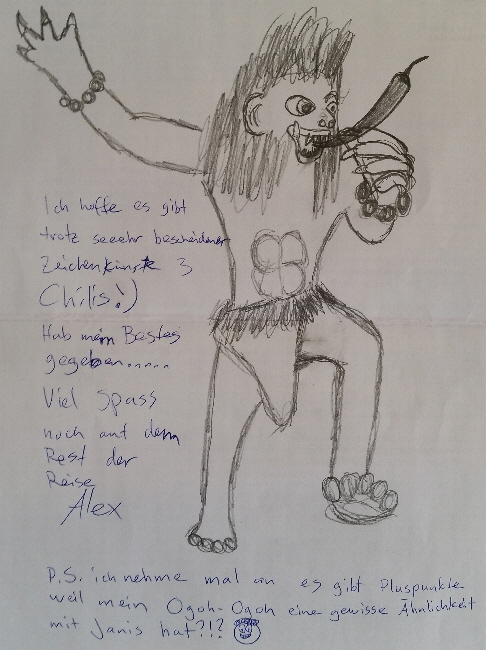 Ich hoffe es gibt
trotz seeehr bescheidener
Zeichenkünste 3
Chilis!)
Hab mein Bestes
gegeben.....
Viel Spass
noch auf dem
Rest der
Reise
Alex
P.S. ich nehme mal an es gibt Pluspunkte
weil mein Ogoh-Ogoh eine gewisse Ähnlichkeit
mit Janis hat?!?